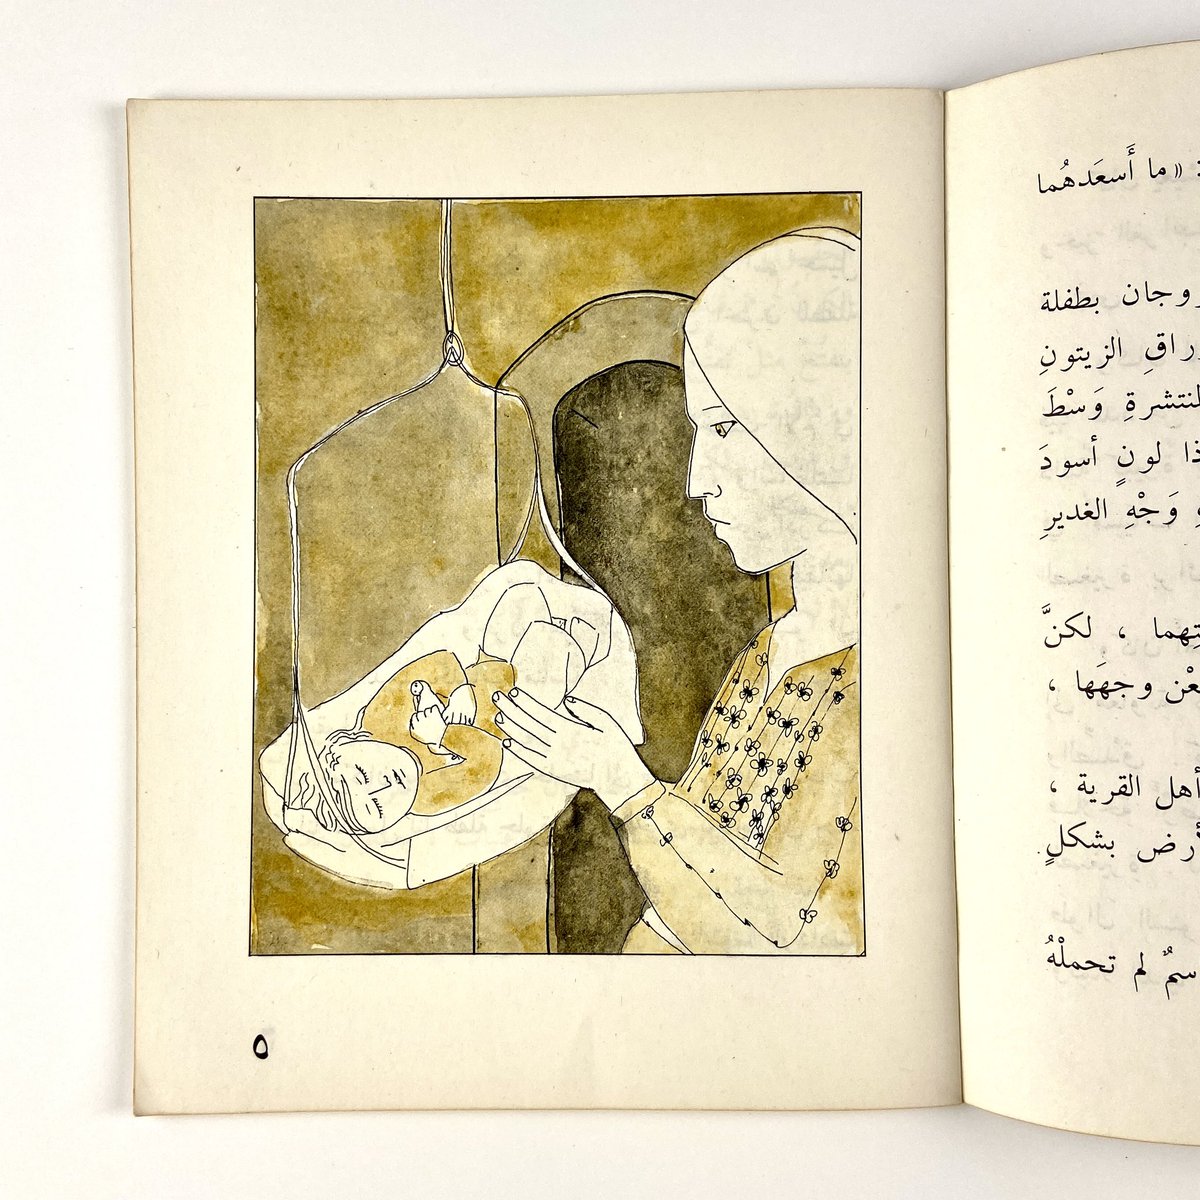 : « ما أَسعَدهُما
وجان بطفلة
راقِ الزيتونِ
لمنتشرةِ وَسْطَ
ذا لونٍ أسودَ
وَجْهِ الغديرِ
تِهِما ، لكنَّ
عْن وجهَها ،
أهل القرية ،
أرض بشكلٍ
سمٌ لم تحملْهُ
٥